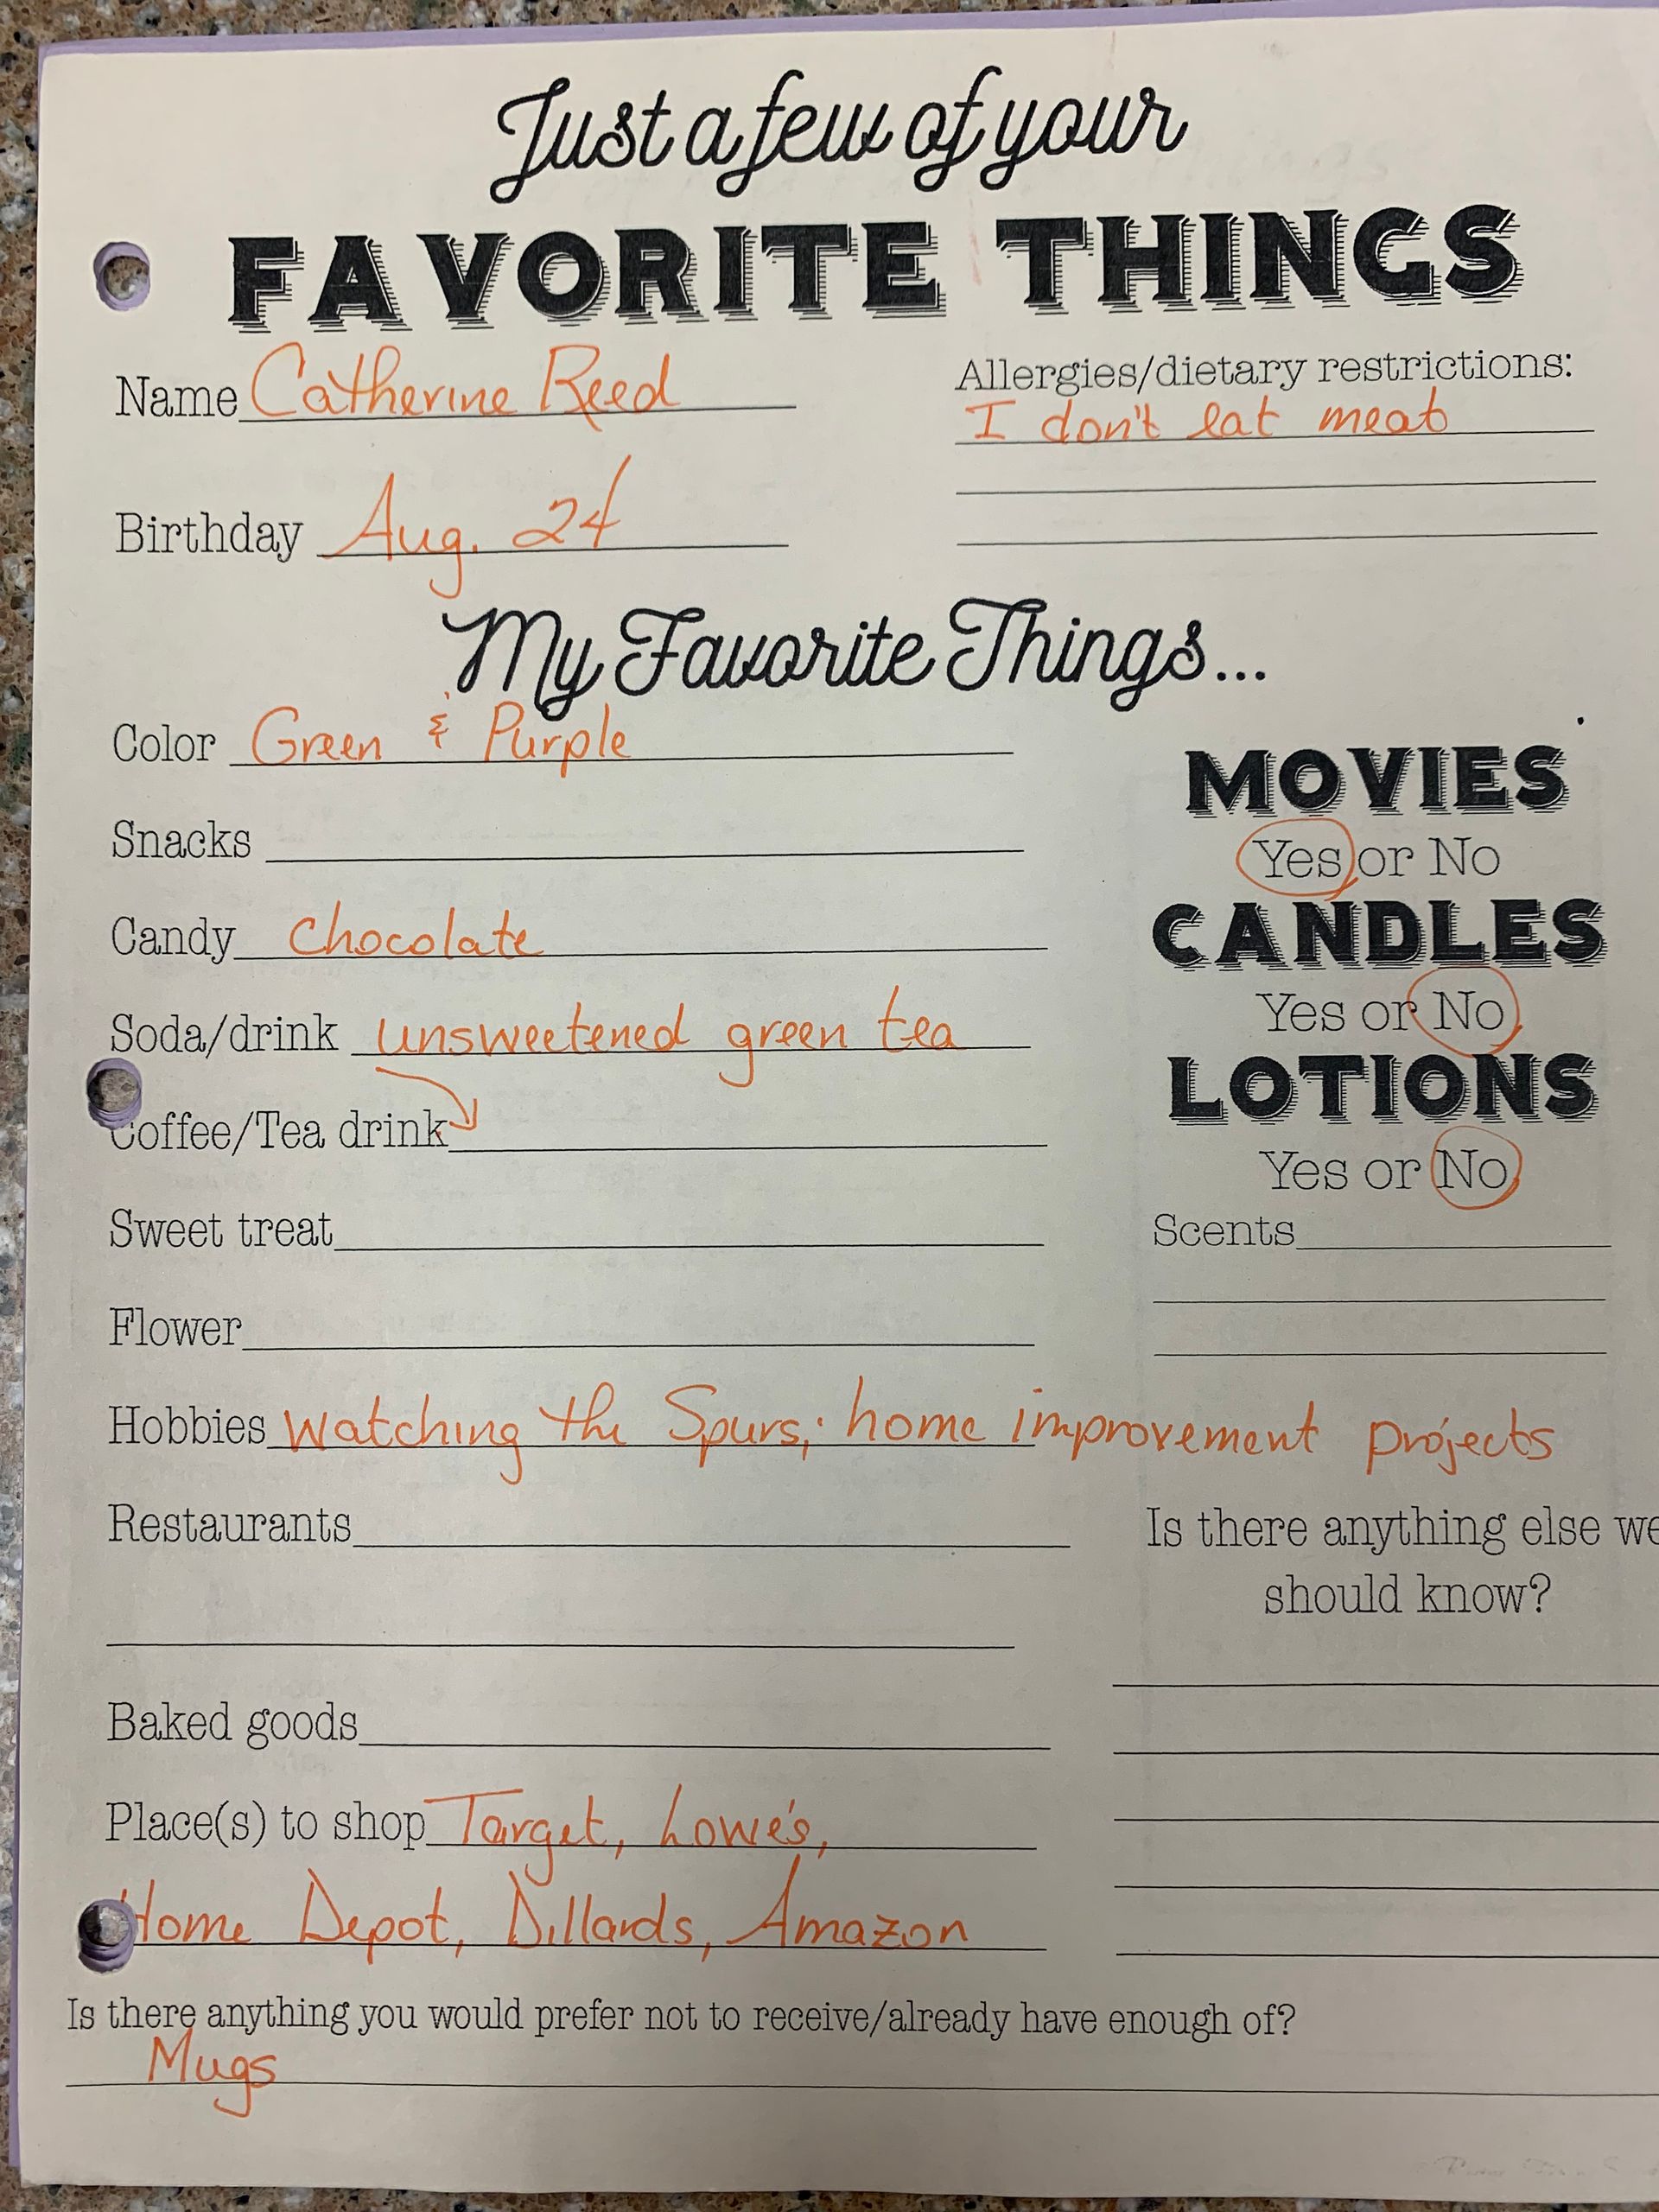 Just a few of your
FAVORITE THINGS
Name Catherine Reed
Allergies/dietary restrictions:
I don't eat meat
Birthday Aug. 24
My Favorite Things...
Color Green & Purple
Snacks
Candy Chocolate
Soda/drink unsweetened green tea
Coffee/Tea drink
Sweet treat
Flower
MOVIES
Yes or No
CANDLES
Yes or No
LOTIONS
Yes or No
Scents
Hobbies Watching the Spurs; home improvement projects
Restaurants
Is there anything else we
should know?
Baked goods
Place(s) to shop Target, Lowe's,
Home Depot, Dillards, Amazon
Is there anything you would prefer not to receive/already have enough of?
Mugs